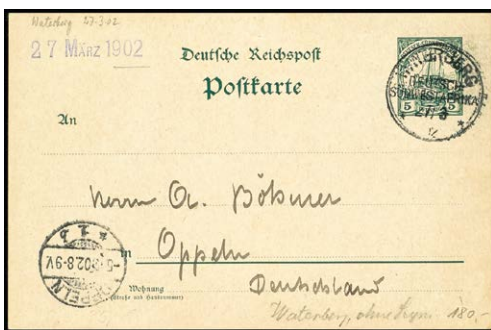 Waterberg 27.3.02
27 MÄRZ 1902
Deutsche Reichspost
Postkarte
An
WATERBERG
DEUTSCH
SÜDWESTAFRIKA
27/3
5 5
Herrn A.
in Oppeln
Deutschland
OPPELN
02.8-9V.
Wohnung
(Straße und Hausnummer)
Waterberg, ohne 180,-